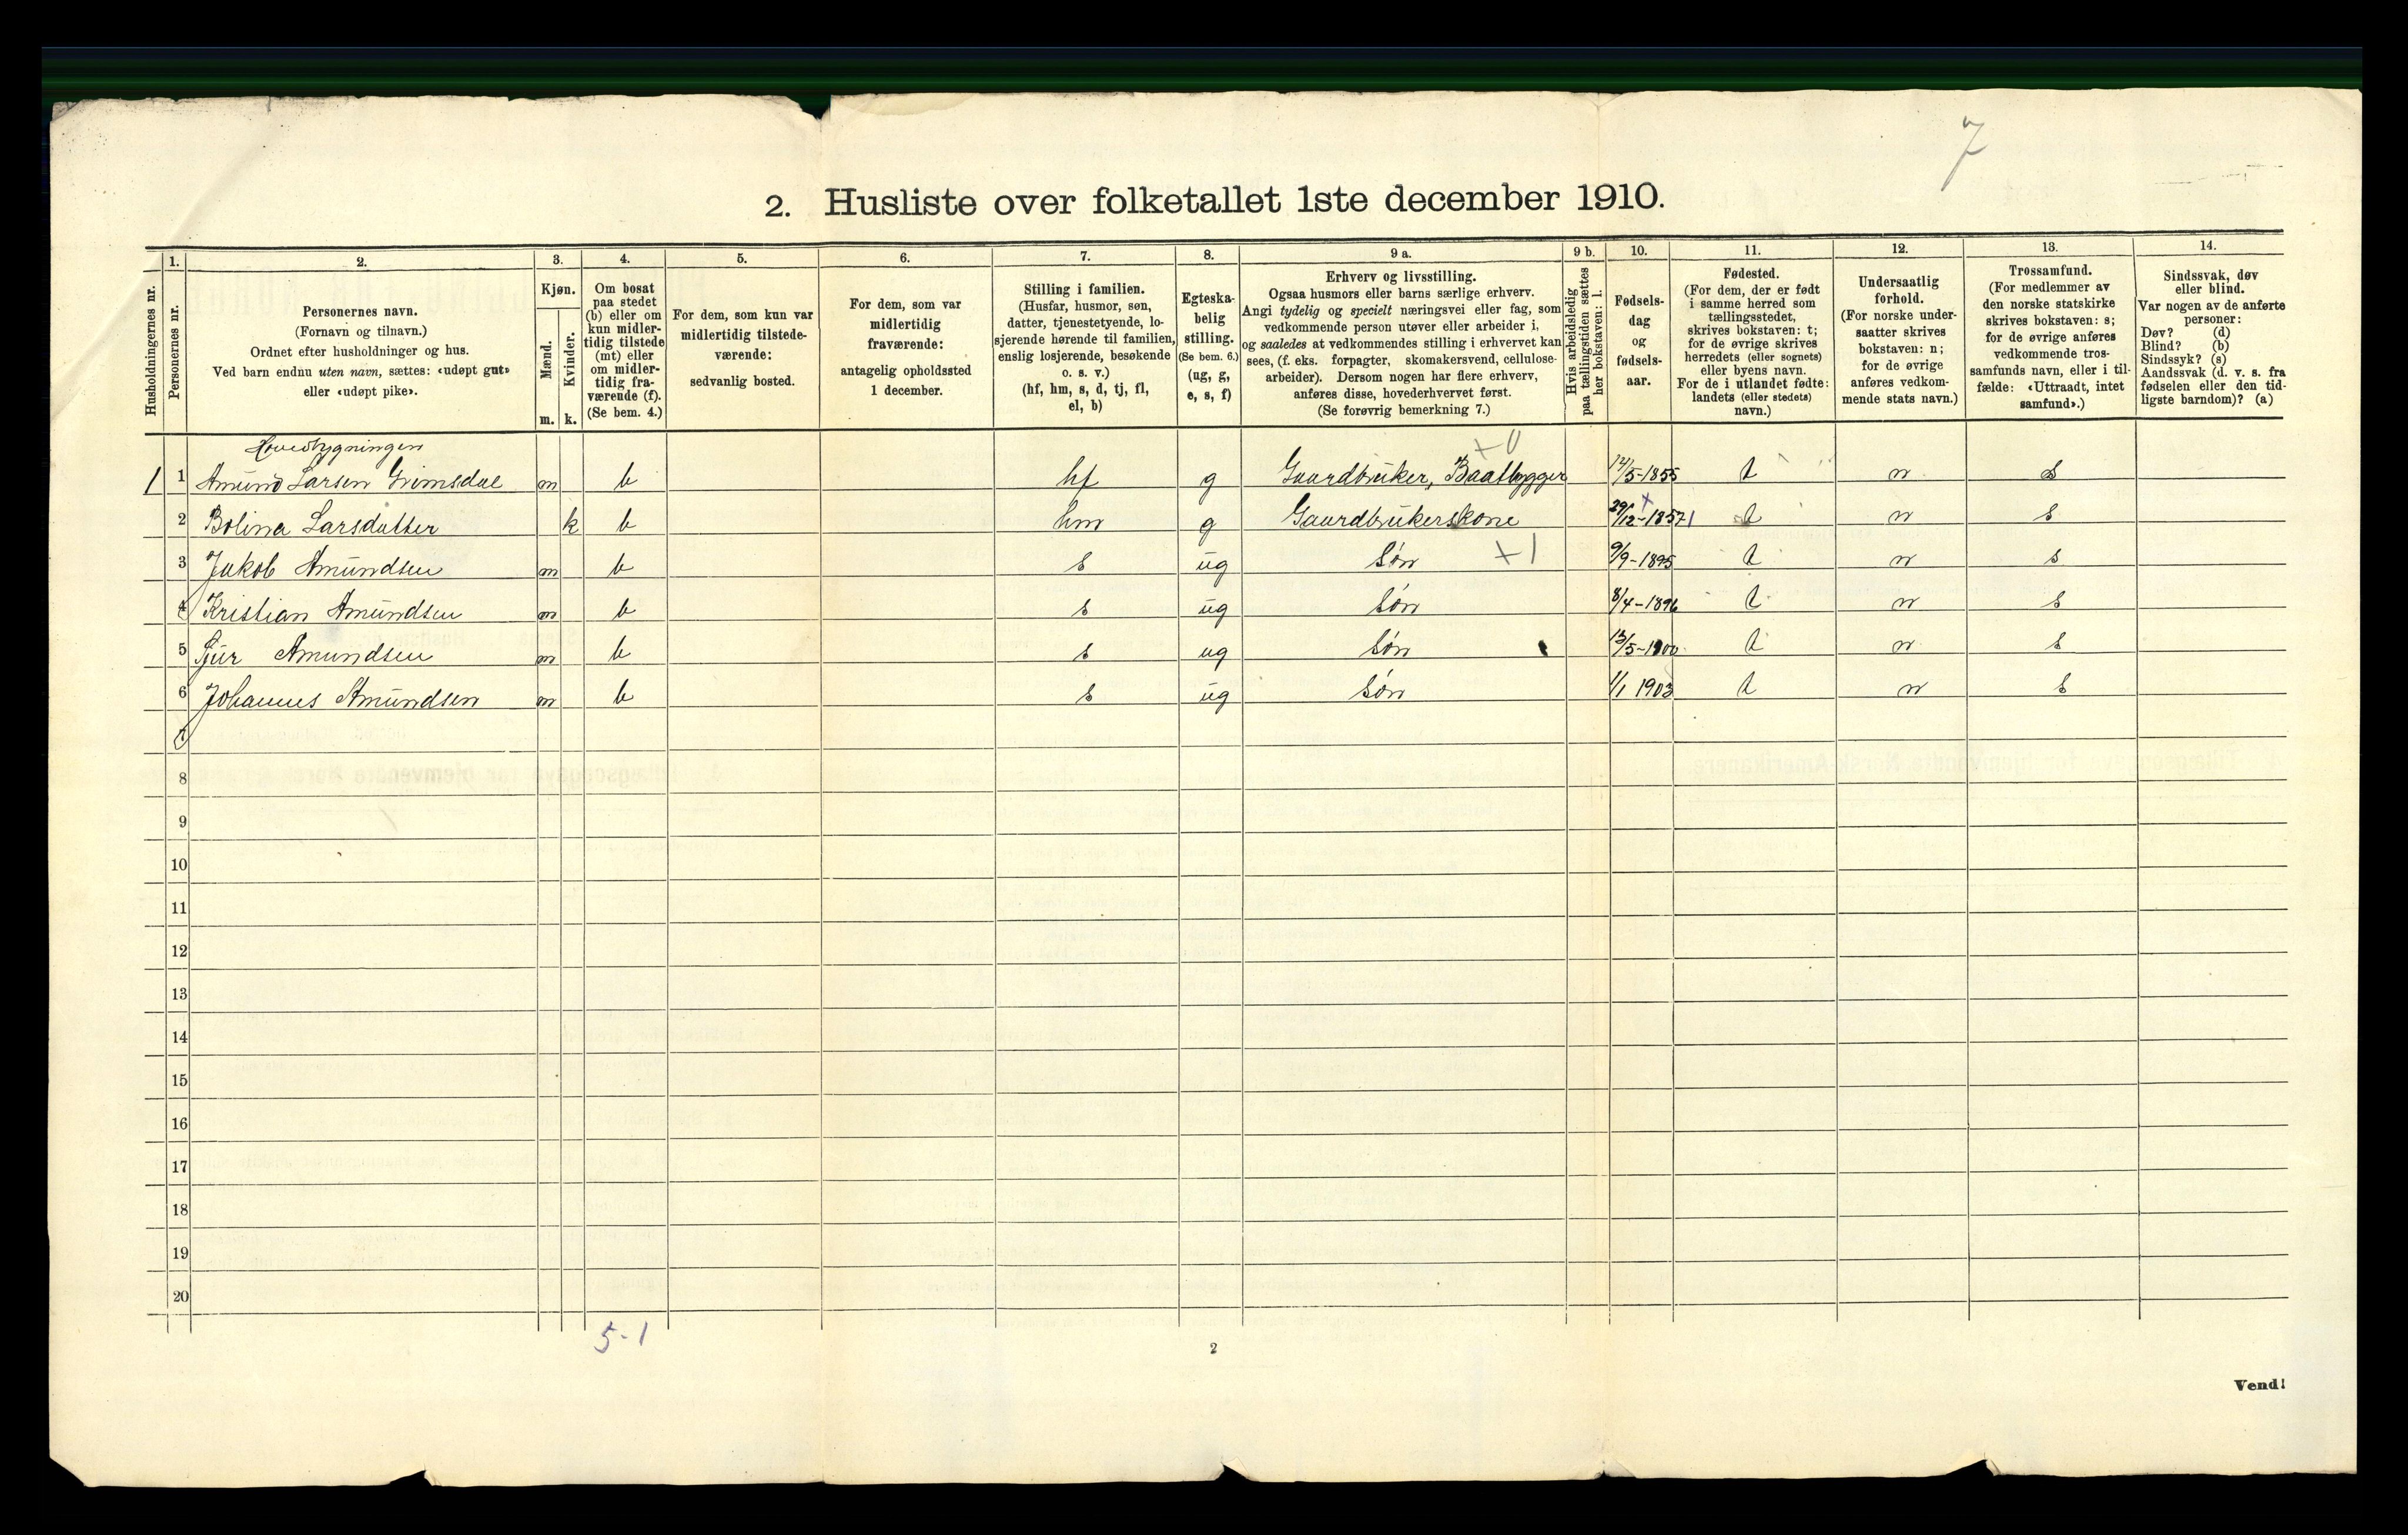 7
2. Husliste over folketallet 1ste december 1910.
Husholdningernes nr.
1.
Personernes nr.
2.
Personernes navn.
(Fornavn og tilnavn.)
Ordnet efter husholdninger og hus.
Ved barn endnu uten navn, sættes: «udøpt gut»
eller «udøpt pike».
3.
Kjøn.
Mænd.
Kvinder.
m. k.
4.
Om bosat
paa stedet
(b) eller om
kun midler-
tidig tilstede
(mt) eller
om midler-
tidig fra-
værende (f).
(Se bem. 4.)
5.
For dem, som kun var
midlertidig tilstede-
værende:
sedvanlig bosted.
6.
For dem, som var
midlertidig
fraværende:
antagelig opholdssted
1 december.
7.
Stilling i familien.
(Husfar, husmor, søn,
datter, tjenestetyende, lo-
sjerende hørende til familien,
enslig losjerende, besøkende
o. s. v.)
(hf, hm, s, d, tj, fl,
el, b)
8.
Egteska-
belig
stilling.
(Se bem. 6.)
(ug, g,
e, s, f)
9 a.
Erhverv og livsstilling.
Ogsaa husmors eller barns særlige erhverv.
Angi tydelig og specielt næringsvei eller fag, som
vedkommende person utøver eller arbeider i,
og saaledes at vedkommendes stilling i erhvervet kan
sees, (f. eks. forpagter, skomakersvend, cellulose-
arbeider). Dersom nogen har flere erhverv,
anføres disse, hovederhvervet først.
(Se forøvrig bemerkning 7.)
9 b.
Hvis arbeidsledig
paa tællingstiden sættes
her bokstaven: l.
10.
Fødsels-
dag
og
fødsels-
aar.
11.
Fødested.
(For dem, der er født
i samme herred som
tællingsstedet,
skrives bokstaven: t;
for de øvrige skrives
herredets (eller sognets)
eller byens navn.
For de i utlandet fødte:
landets (eller stedets)
navn.)
12.
Undersaatlig
forhold.
(For norske under-
saatter skrives
bokstaven: n;
for de øvrige
anføres vedkom-
mende stats navn.)
13.
Trossamfund.
(For medlemmer av
den norske statskirke
skrives bokstaven: s;
for de øvrige anføres
vedkommende tros-
samfunds navn, eller i til-
fælde: «Uttraadt, intet
samfund».)
14.
Sindssvak, døv
eller blind.
Var nogen av de anførte
personer:
Døv? (d)
Blind? (b)
Sindssyk? (s)
Aandssvak (d. v. s. fra
fødselen eller den tid-
ligste barndom)? (a)
Hovedbygningen
+0
1 1 Amund Larsen Grimsdal m b hf g Gaardbruker, Baatbygger 12/5-1855 t n s
2 Bolina Larsdatter k b hm g Gaardbrukerskone 29/12-1857 t n s
3 Jakob Amundsen m b s ug Søn +1 9/9-1895 t n s
4 Kristian Amundsen m b s ug Søn 8/4-1896 t n s
5 Sjur Amundsen m b s ug Søn 13/5-1900 t n s
6 Johannes Amundsen m b s ug Søn 1/1 1903 t n s
7
8
9
10
11
12
13
14
15
16
17
18
19
20
5-1
2
Vend!